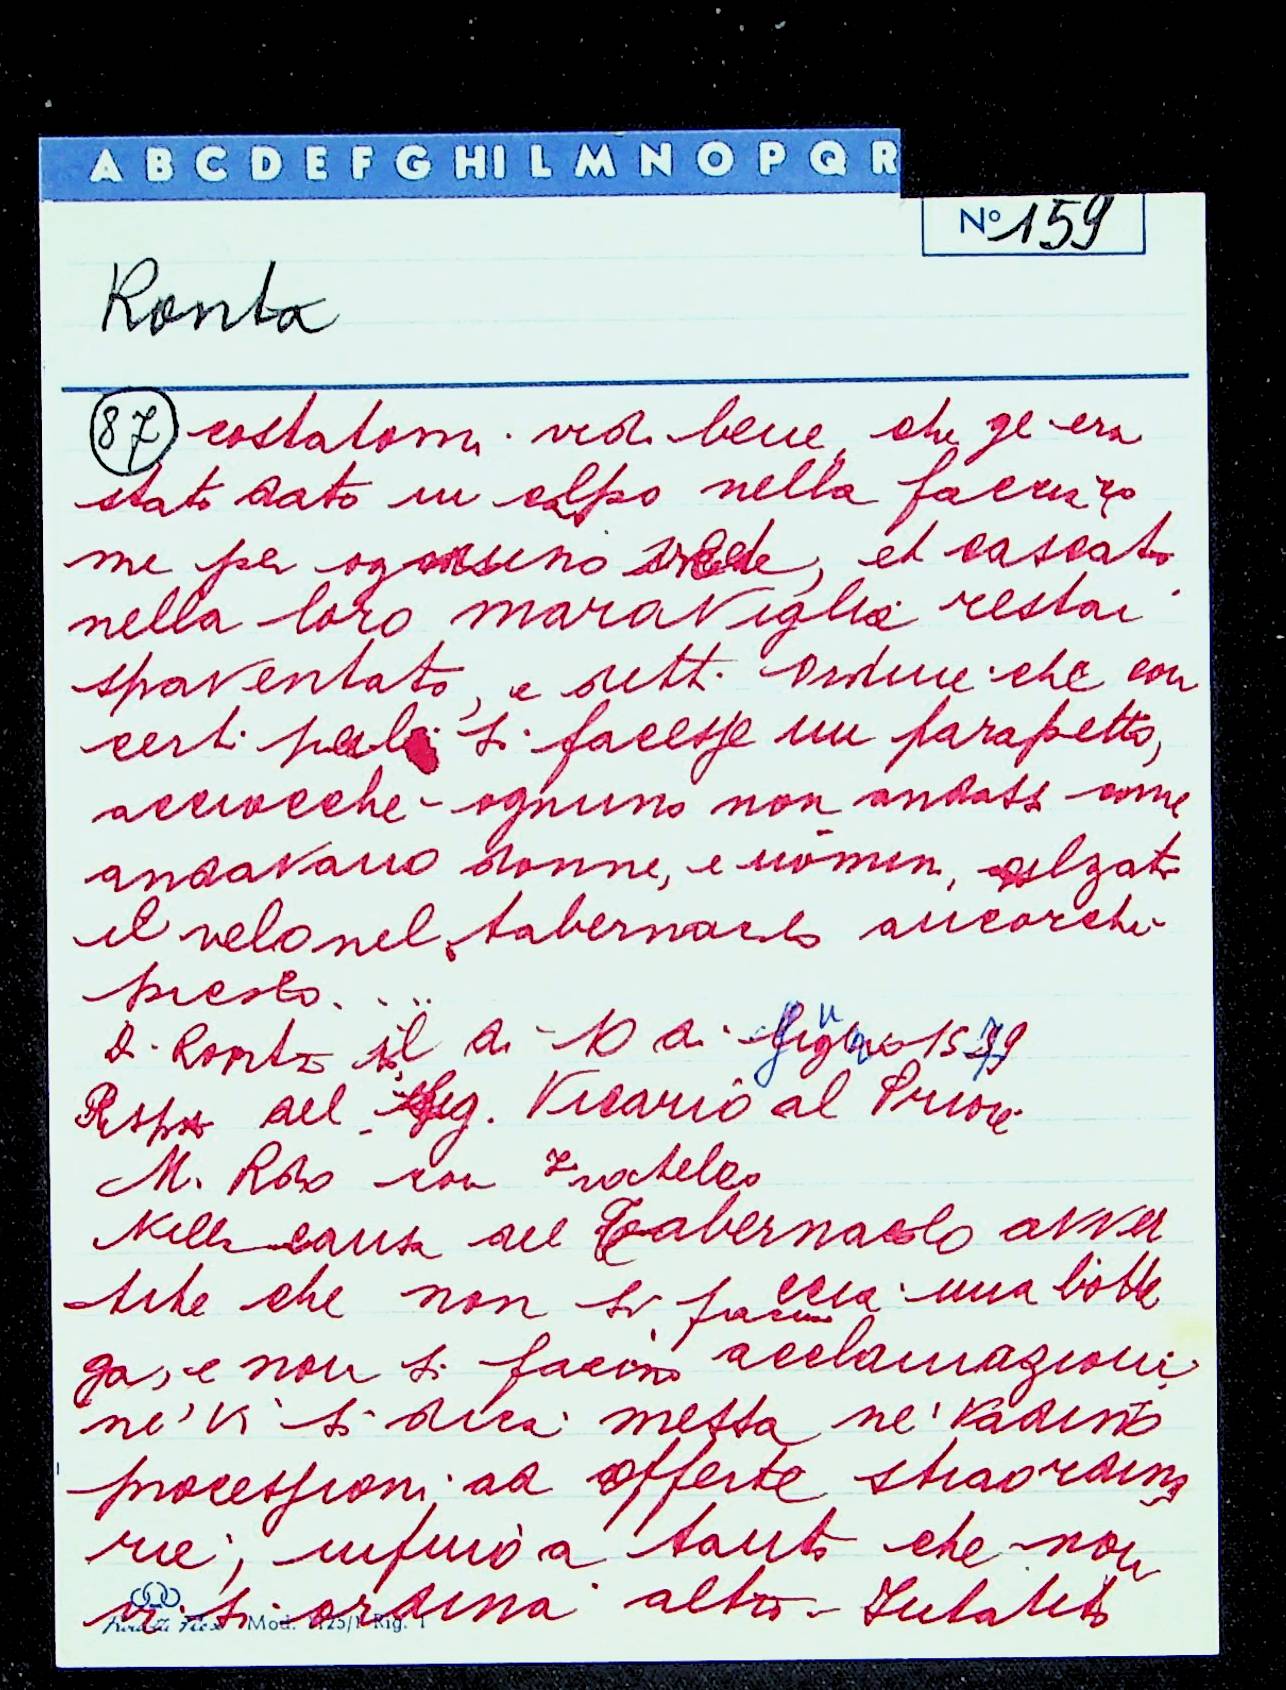 A B C D E F G HI L M N O P Q R
Nº 159
Ronta
87 costatomi vidi bene, che ge era
stato dato un colpo nella faccia, co
me per ognuno si vede, et cascato
nella loro maraviglia restai
spaventato, e detti ordine che con
certi pali si facesse un parapetto,
acciocche ognuno non andasse come
andavano donne, e uomini, alzato
il velo nel tabernacolo ancorche
piccolo. ...
Di Ronta il di 10 di Giugno 1579
Rispta del Sig. Vicario al Priore
M. Roso con Fratello
Nella causa del Tabernacolo avver
tite che non si faccia una botte
ga, e non si faccino acclamazioni
ne' vi si dica messa ne' vadino
processioni ad offerte straordina
rie, infino a tanto che non
vi si ordina altro. Intanto
Mod. 125/1 Rig. 1